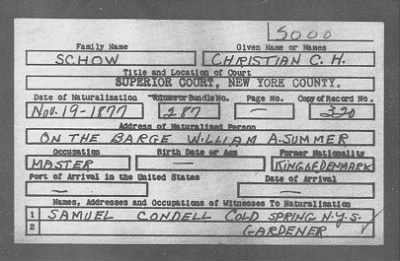 S000
Family Name Given Name or Names
SCHOW CHRISTIAN C. H.
Title and Location of Court
SUPERIOR COURT, NEW YORK COUNTY.
Date of Naturalization Volume or Bundle No. Page No. Copy of Record No.
Nov. 19-1877 287 — 320
Address of Naturalized Person
ON THE BARGE WILLIAM A. SUMMER
Occupation Birth Date or Age Former Nationality
MASTER — KING of DENMARK
Port of Arrival in the United States Date of Arrival
— —
Names, Addresses and Occupations of Witnesses To Naturalization
1 SAMUEL CONDELL COLD SPRING N.Y.S.
2 GARDENER